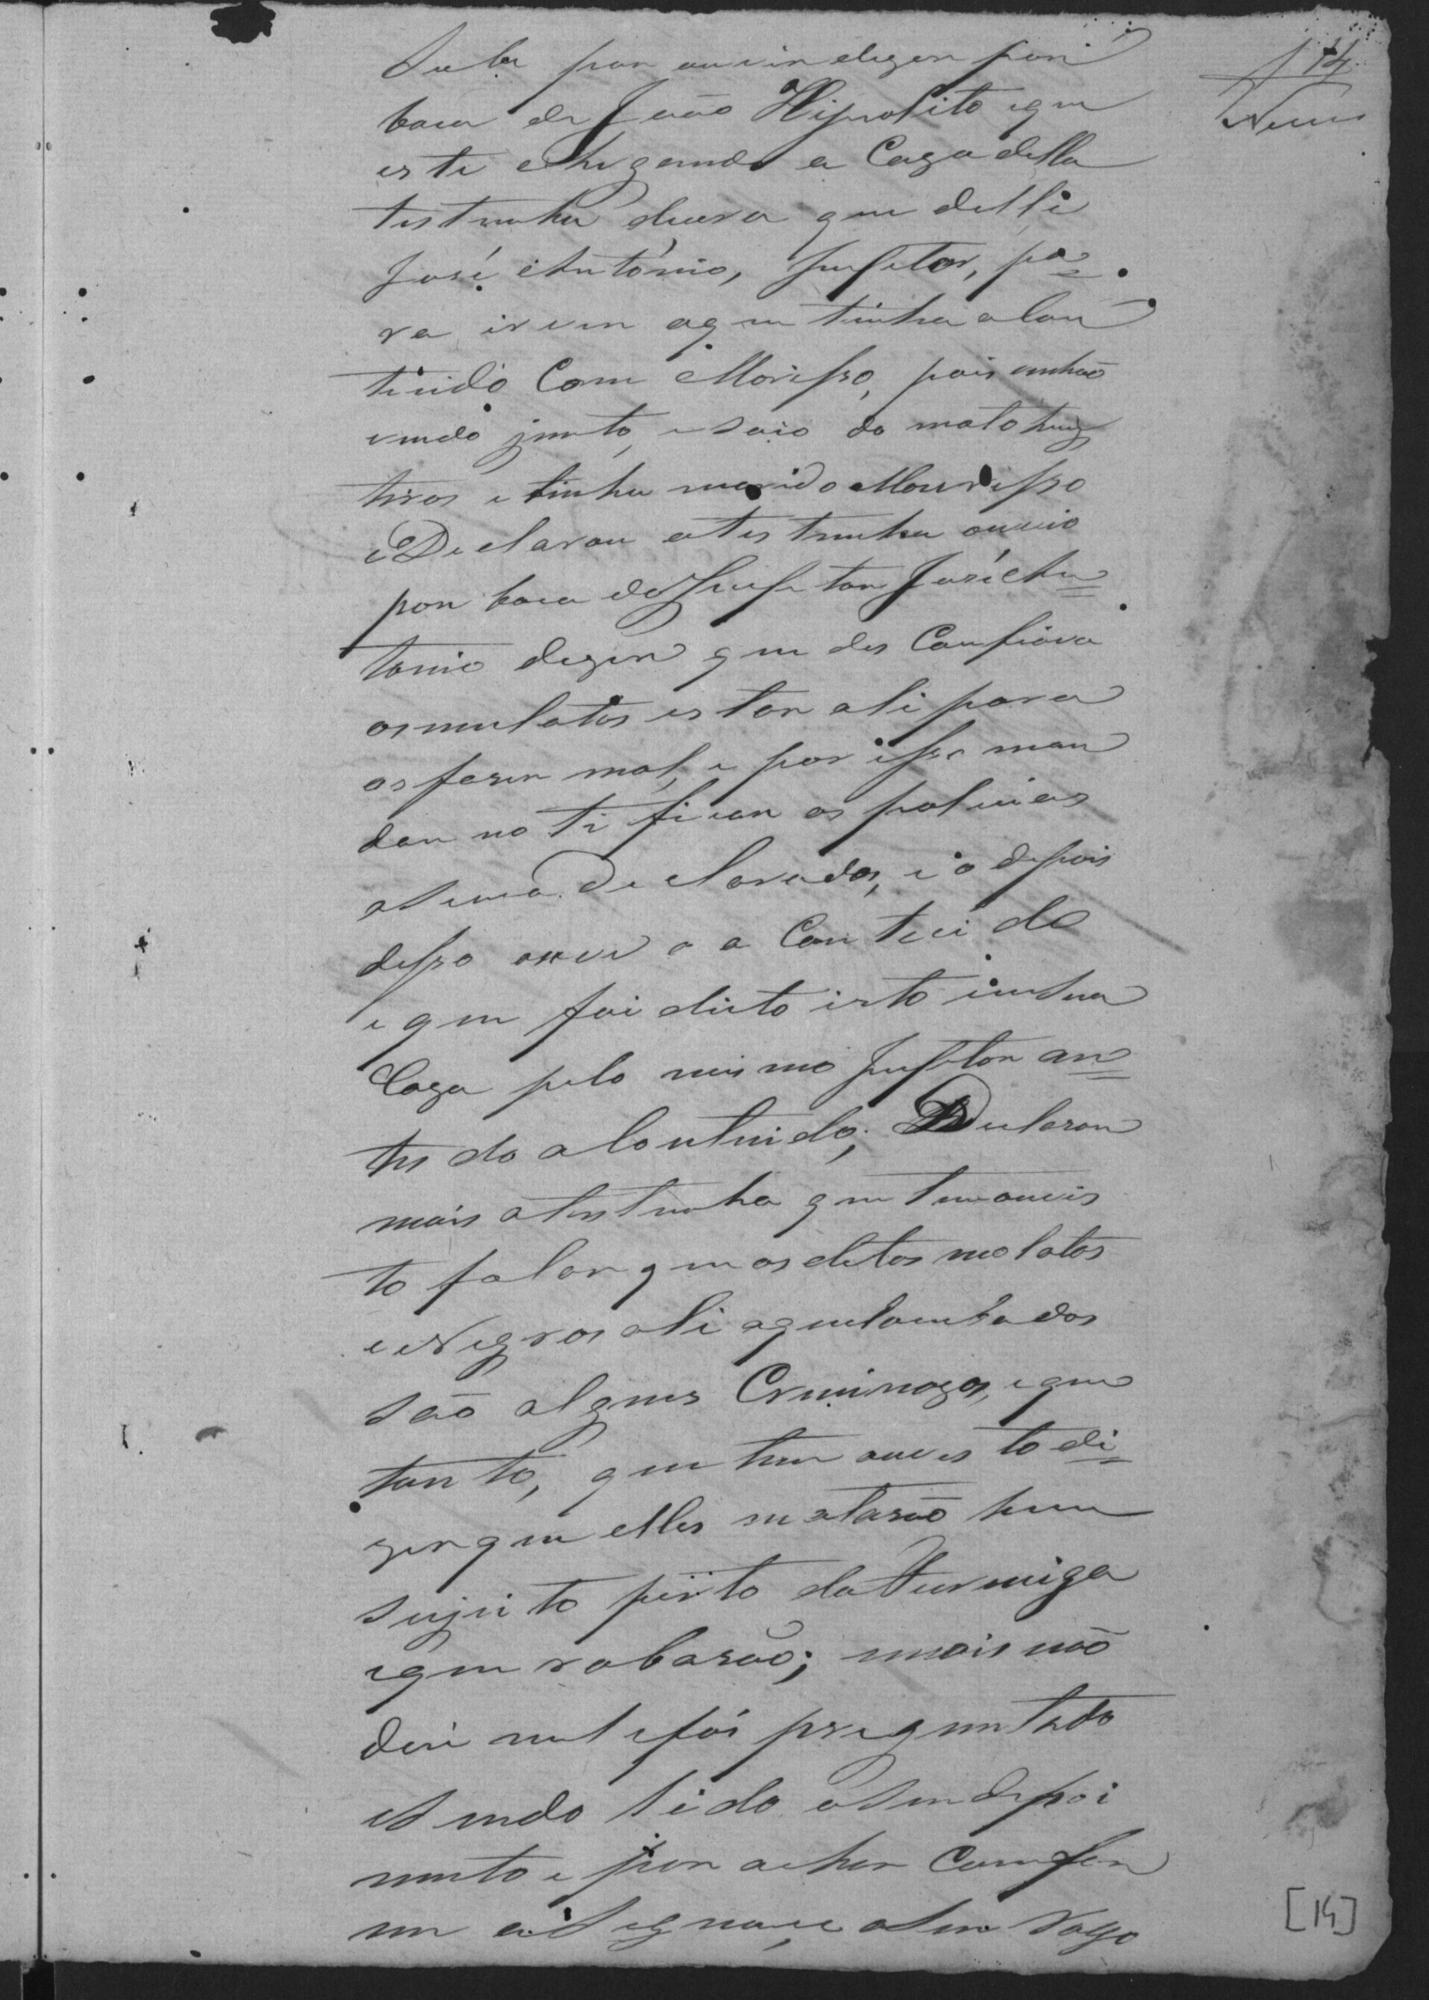 14
Neves
Sabe por ouvir dizer por
boca de João Hipolito e que
este chegando a Caza della
testunha dicera que delle
José Antônio, Inspetor, pa=
ra irem aque tinha acon
tecido Com Morisso, pois vinhão
vindo junto, e saio do mato huns
tiros e tinha morrido Mourisso
e Declarou a testunha ouvio
por boca do Inspetor José An=
tonio dizer que desConfiava
os mulatos estar ali para
os fazer mal, e por isso man
dou notificar os policias
asima Declarados, e o depois
desso ouve o aContecido
e que foi dicto isto em sua
Caza pelo mesmo Inspetor an=
tes do acontecido; Declarou
mais a testunha que tem ouvis
to falar que os ditos molatos
e Negros ali aquilombados
são alguns Criminozos, e que
tanto, que tem ouvisto di=
zer que elles matarão hum
sujeito perto da Furmiga
e que robarão; mais não
dice nem lefoi preguntado
e sendo lido o seu depoi
mento e por achar Confor
me assignou a seu rogo
[14]